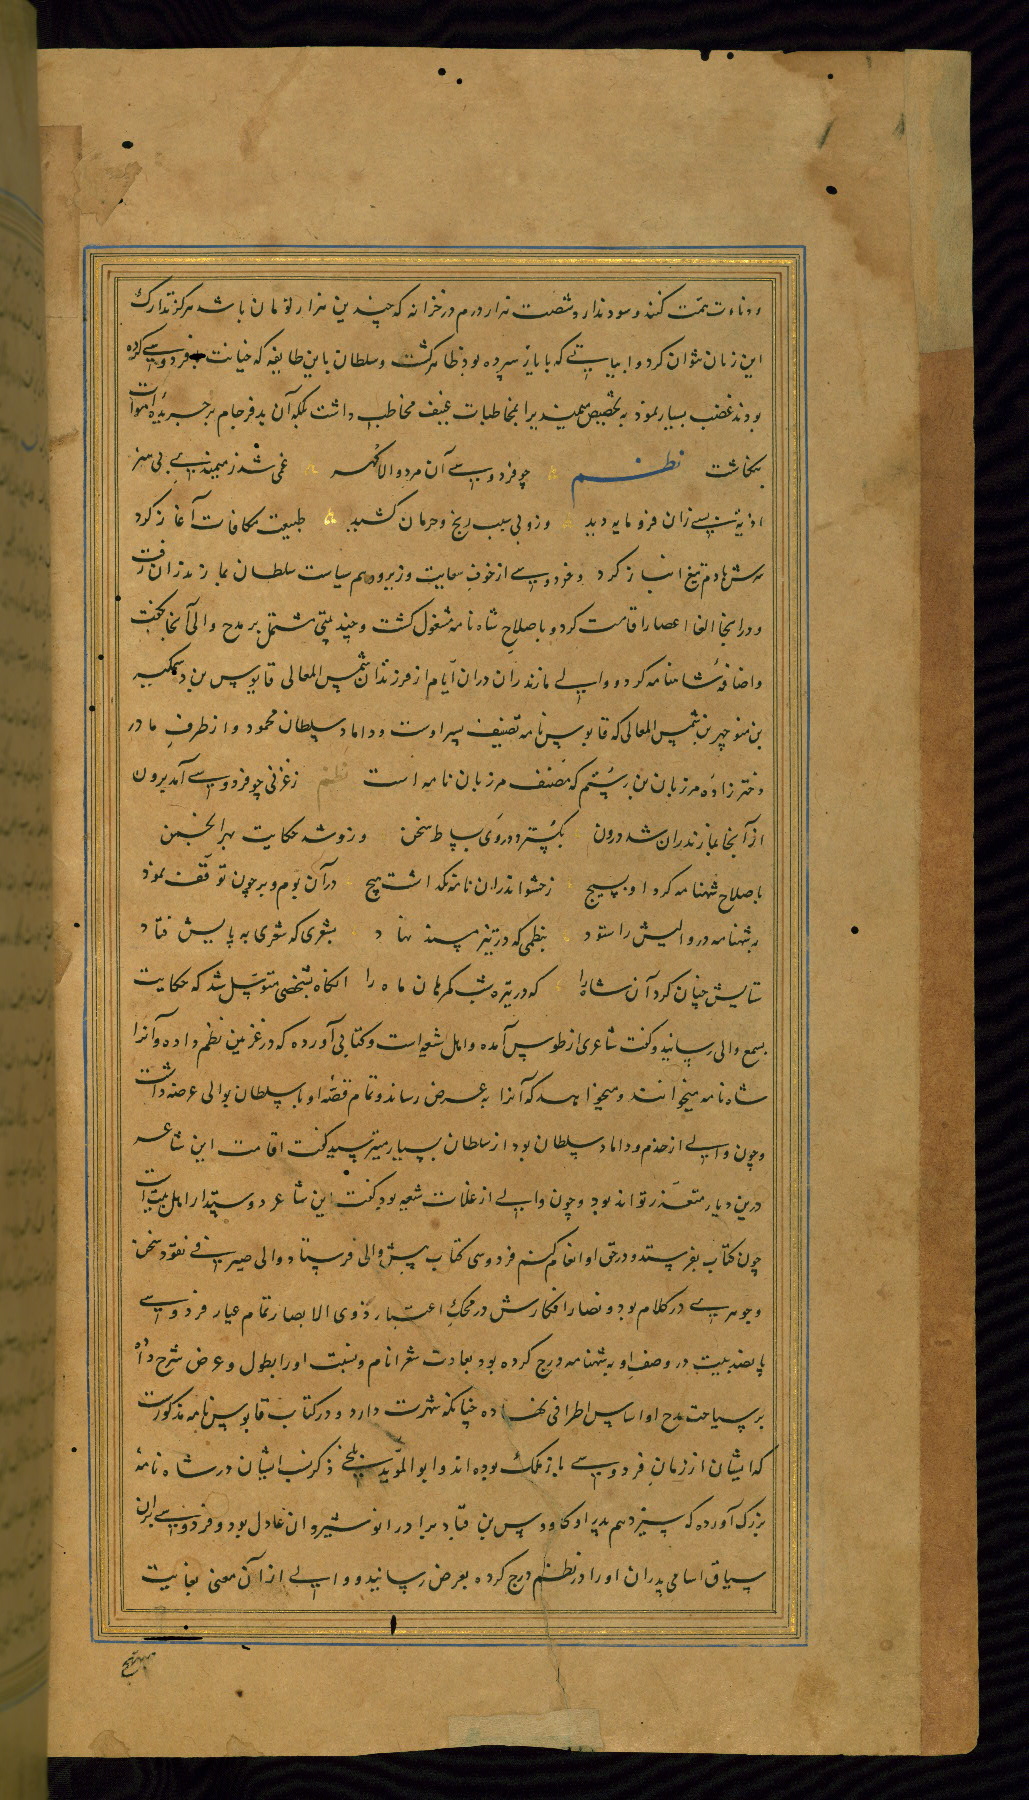 ودناءت همت کنند و سود ندارد و شصت هزار درم در خزانه که چندین هزار تومان باشد هرگز تدارک
این زیان نتوان کرد و ابیاتی که بایاز سپرده بود ظاهر گشت و سلطان باین طایفه که خیانت با فردوسی کرده
بودند غضب بسیار نمود به تخصیص میمندی را بمخاطبات عنیف مخاطب داشت بلکه آن بدفرجام بر جریده اموات
بنگاشت نظم چو فردوسی آن مرد والا گهر غمی شد ز میمندی بی هنر
اذیت بسی زان فرومایه دید وزو بی سبب رنج و حرمان کشید طبیعت مکافات آغاز کرد
سرش هادم تیغ انباز کرد و فردوسی از خوف سعایت وزیر و هم سیاست سلطان بمازندران رفت
و در انجا اقامت کرد و باصلاح شاه نامه مشغول گشت و چند بیتی مشتمل بر مدح والی آنجا بگفت
و اضافهٔ شاهنامه کرد و والی مازندران دران ایام از فرزندان شمس المعالی قابوس بن وشمگیر
بن منوچهر بن شمس المعالی که قابوس نامه تصنیف پسر اوست و داماد سلطان محمود و از طرف مادر
دختر زاده مرزبان بن رستم که مصنف مرزبان نامه است نظم ز غزنی چو فردوسی آمد برون
از آنجا بمازندران شد درون بگسترد در وی بساط سخن وزو شد حکایت بهر انجمن
باصلاح شهنامه کرد او بسیج ز حشو اندران نامه نگذاشت هیچ در آن بوم و بر چون توقف نمود
به شهنامه در والیش را ستود بنظمی که در تیز بیند نهاد بشعری که شعری به پایش فتاد
ستایش چنان کرد آن شاه را که در تیره شب گمرهان ماه را انگاه بشخصی متوسل شد که حکایت
بسمع والی رسانید و گفت شاعری از طوس آمده و اهل شیعه است و کتابی آورده که در غزنین نظم داده و آنرا
شاه نامه میخوانند و میخواهد که آنرا به عرض رساند و تمام قصهٔ او با سلطان بوالی عرضه داشت
و چون والی از خدم و داماد سلطان بود از سلطان بسیار میترسید گفت اقامت این شاعر
درین دیار متعذر تواند بود و چون والی از غلات شیعه بود گفت این شاعر دوستدار اهل بیت است
چون کتاب بفرستد در حق او انعام کنم فردوسی کتاب پیش والی فرستاد والی صیرفی نقود سخن
و جوهری در کلام بود و نضار افکارش در محک اعتبار ذوی الابصار تمام عیار فردوسی
پانصد بیت در وصف او به شهنامه درج کرده بود بعادت شعرا نام و نسبت او را بطول و عرض شرح داده
بر سیاحت مدح او اساس اطرافی نهاده چنانکه شهرت دارد و در کتاب قابوس نامه مذکورست
که ایشان از زمان فردوسی باز ملک بوده اند و ابو المؤید بلخی ذکر نسب ایشان در شاه نامهٔ
بزرگ آورده که سیزدهم پدر او کاووس بن قباد برادر انوشیروان عادل بود و فردوسی بران
سیاق اسامی پدران او را در نظم درج کرده بعرض رسانید و والی از آن معنی بغایت